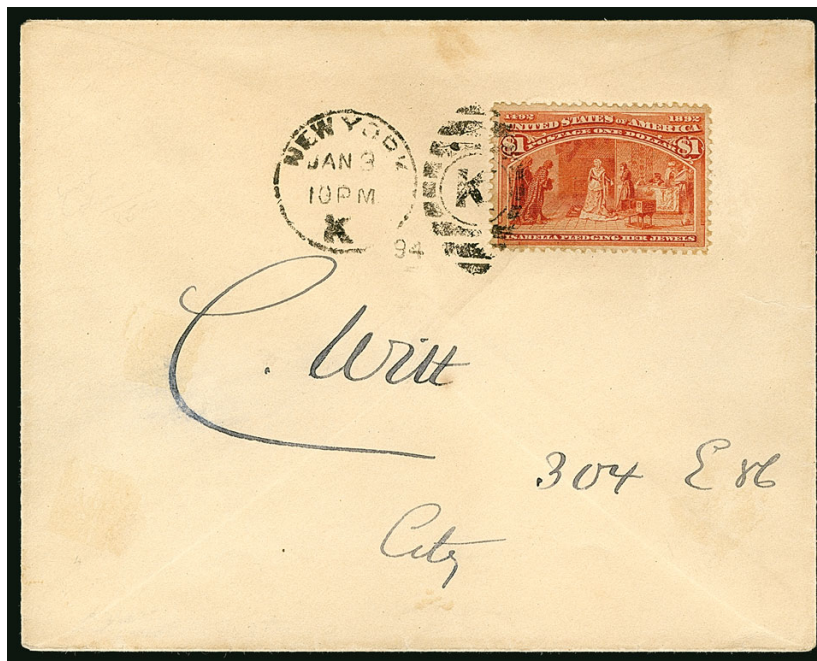 NEW YORK
JAN 9
10 PM
K
94
K
1492 1892
UNITED STATES OF AMERICA
POSTAGE ONE DOLLAR
$1 $1
ISABELLA PLEDGING HER JEWELS
C. Witt
304 E 86
City